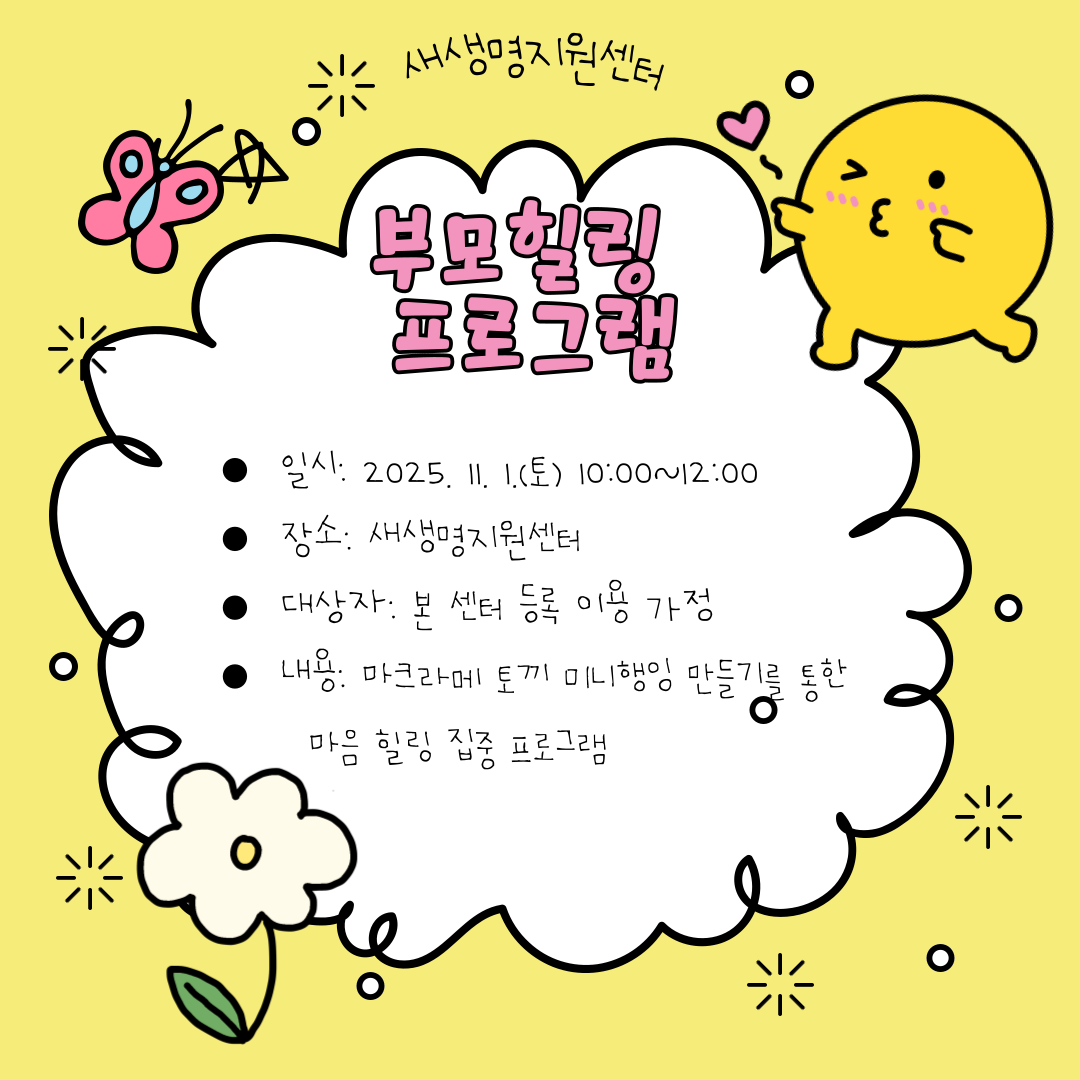 새생명지원센터
부모힐링
프로그램
● 일시: 2025. 11. 1.(토) 10:00~12:00
● 장소: 새생명지원센터
● 대상자: 본 센터 등록 이용 가정
● 내용: 마크라메 토끼 미니행잉 만들기를 통한
마음 힐링 집중 프로그램